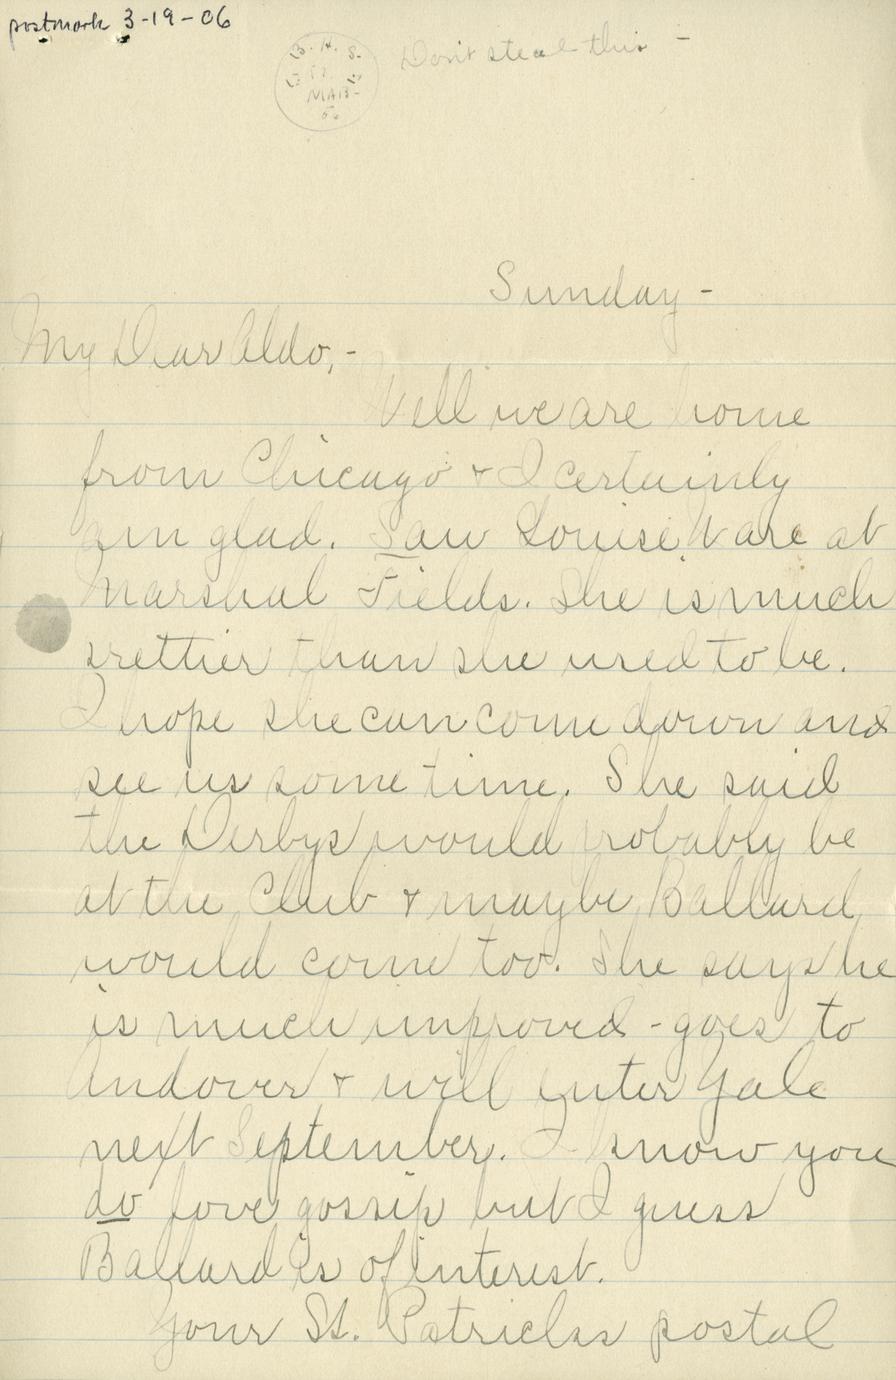 postmark 3-19-06
Don't steal this -
B. H. S.
MAR-
Sunday -
My Dear Aldo,-
Well we are home
from Chicago + I certainly
am glad. Saw Louise Ware at
Marshal Fields. She is much
prettier than she used to be.
I hope she can come down and
see us some time. She said
the Derbys would probably be
at the Club + maybe Ballard
would come too. She says he
is much improved - goes to
Andover + will enter Yale
next September. I know you
do love gossip but I guess
Ballard is of interest.
Your St. Patricks postal